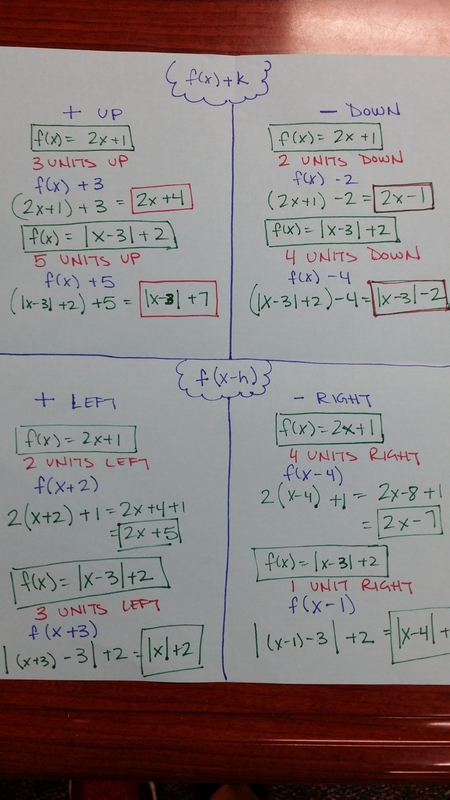 f(x)+k
+ UP
f(x) = 2x+1
3 UNITS UP
f(x) +3
(2x+1) + 3 = 2x+4
f(x) = |x-3| + 2
5 UNITS UP
f(x) +5
(|x-3| +2) +5 = |x-3| + 7
- DOWN
f(x) = 2x+1
2 UNITS DOWN
f(x) -2
(2x+1) -2 = 2x-1
f(x) = |x-3| +2
4 UNITS DOWN
f(x) -4
(|x-3|+2)-4 = |x-3|-2
f(x-h)
+ LEFT
f(x) = 2x+1
2 UNITS LEFT
f(x+2)
2(x+2) + 1 = 2x+4+1
= 2x+5
f(x) = |x-3|+2
3 UNITS LEFT
f(x+3)
|(x+3) -3| +2 = |x|+2
- RIGHT
f(x) = 2x+1
4 UNITS RIGHT
f(x-4)
2(x-4) +1 = 2x-8+1
= 2x-7
f(x) = |x-3|+2
1 UNIT RIGHT
f(x-1)
|(x-1)-3| +2 = |x-4|+